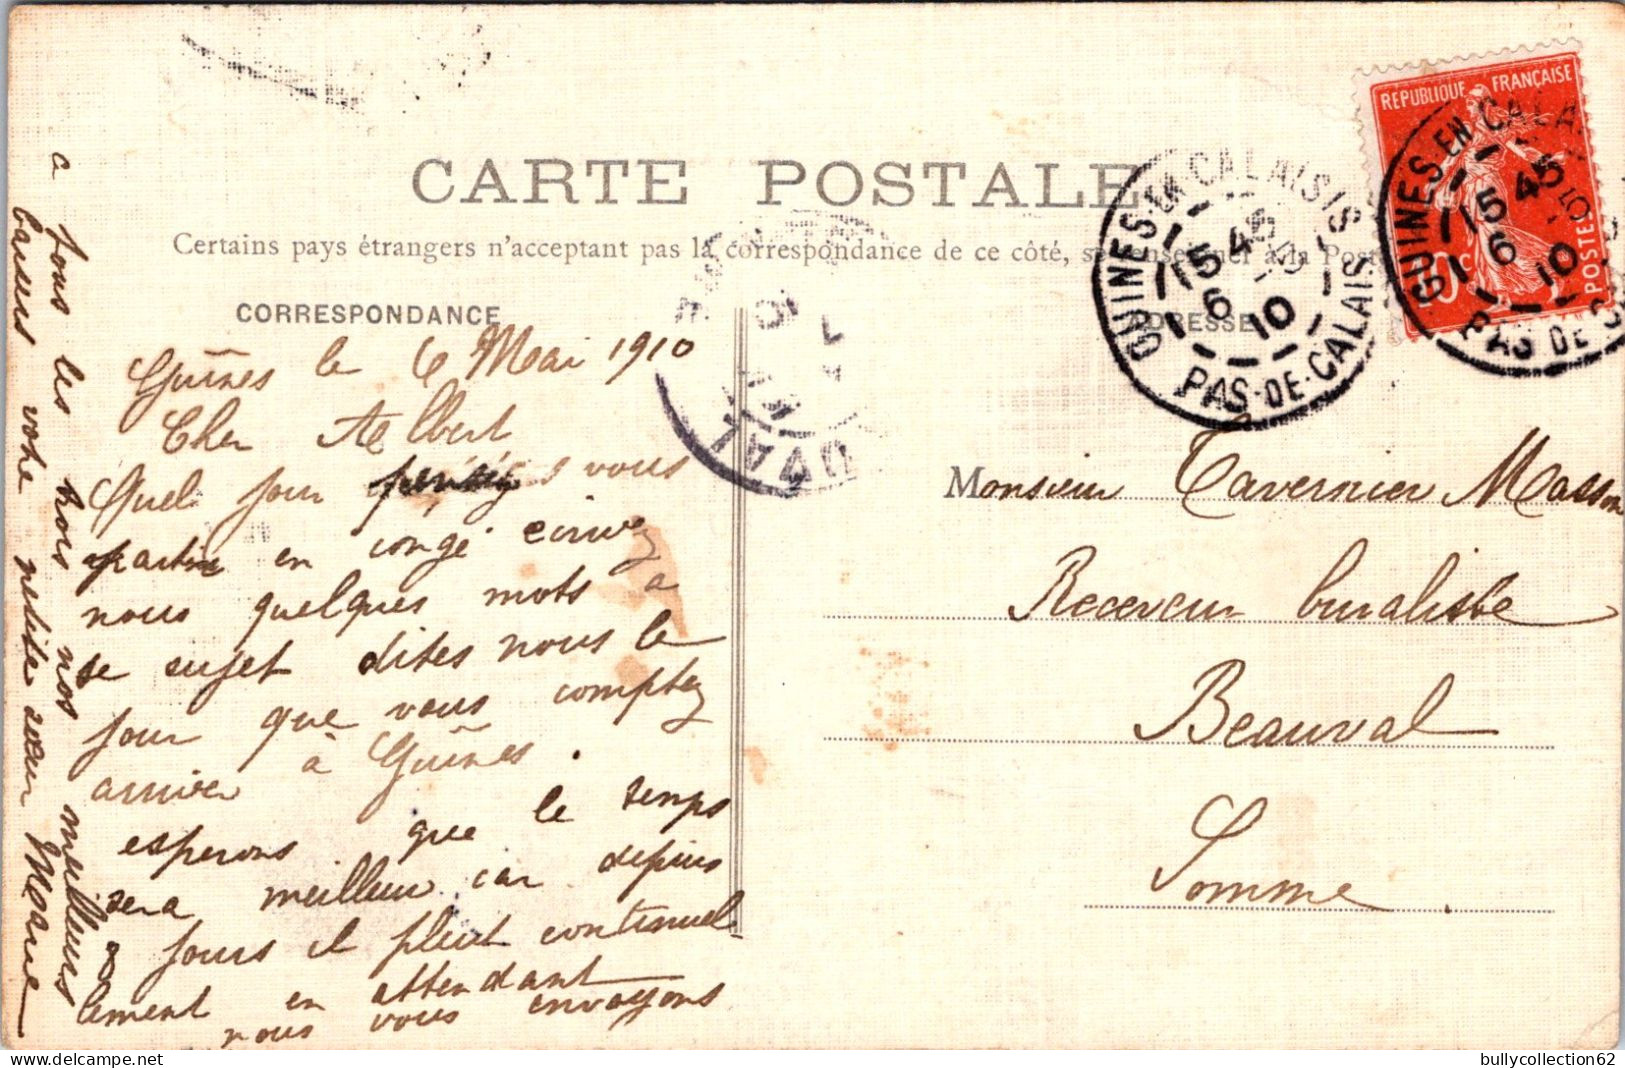 CARTE POSTALE
Certains pays étrangers n'acceptant pas la correspondance de ce côté, se renseigner à la Poste
CORRESPONDANCE
ADRESSE
Guînes le 6 Mai 1910
Cher Albert
Quel jour pensez vous
partir en congé écrivez
nous quelques mots a
se sujet dites nous le
jour que vous comptez
arriver à Guînes.
esperons que le temps
sera meilleur car depuis
8 jours il pleut continuel-
lement en attendant
nous vous envoyons
a tous les trois nos meilleurs
baisers votre petite sœur Marie
Monsieur Tavernier Masson
Receveur buraliste
Beauval
Somme
REPUBLIQUE FRANÇAISE
10c POSTES
GUINES-EN-CALAISIS
15 45
6
10
PAS-DE-CALAIS
GUINES-EN-CALAISIS
15 45
6
10
PAS-DE-CALAIS
bullycollection62